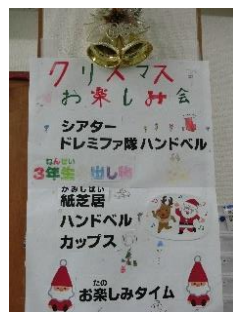 クリスマス
お楽しみ会
シアター
ドレミファ隊 ハンドベル
ねんせい
3年生 出し物
かみしばい
紙芝居
ハンドベル
カップス
たの
お楽しみタイム